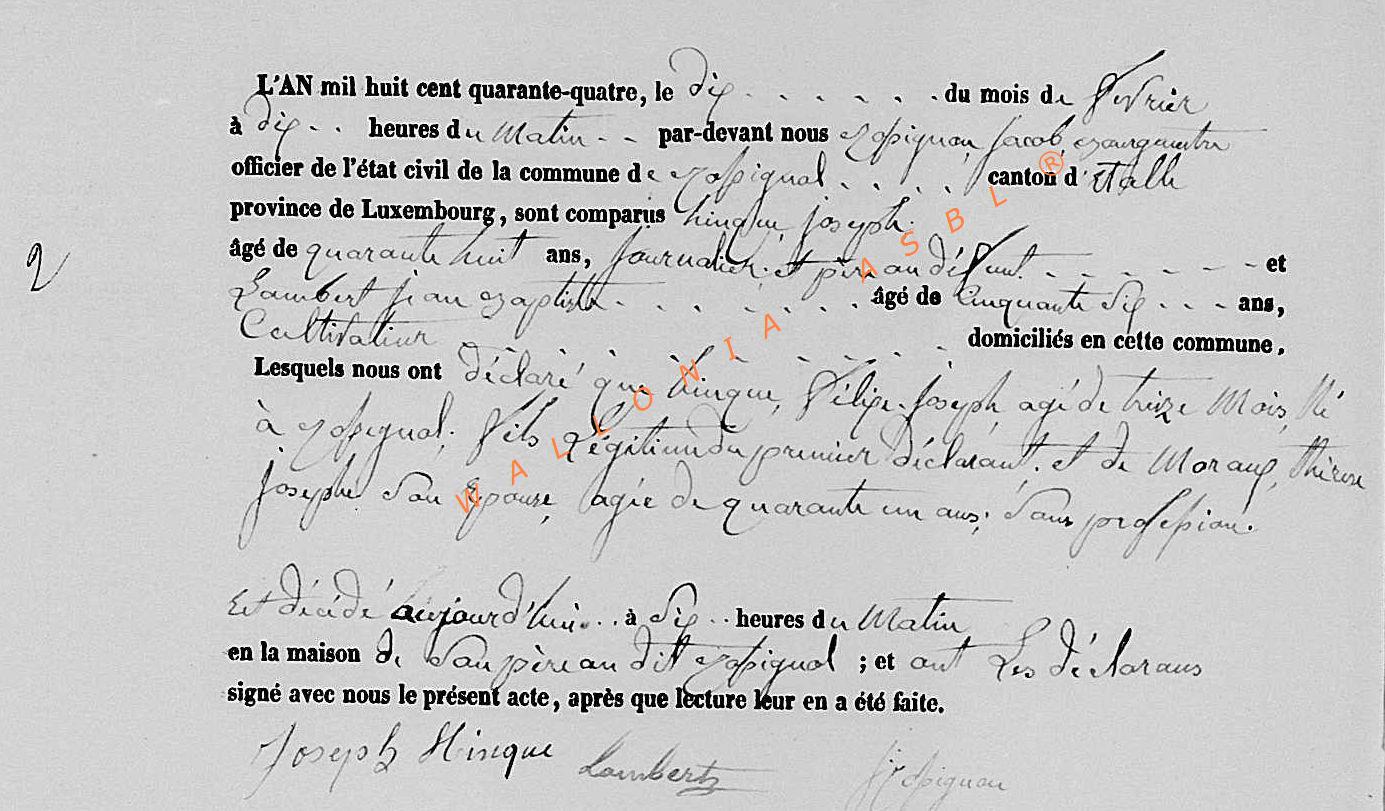 L'AN mil huit cent quarante-quatre, le dix . . . . . . du mois de fevrier
à dix . . heures du Matin . . par-devant nous Rossignon, Jacob, Bourguemtre
officier de l'état civil de la commune de Rossignol . . . . canton d'Etalle
province de Luxembourg, sont comparus hinque, joseph.
âgé de quarante huit ans, journalier. et père au défunt . . . . . . et
Lambert jean Baptiste . . . . . . . âgé de Cinquante Six . . . ans,
Cultivateur . . . . . . domiciliés en cette commune.
Lesquels nous ont déclaré que hinque, félix-joseph, agé de treize Mois, Né
à Rossignol. fils Légitime du premier déclarant. et de Moraux, thérese
josephe Son Epouse, agée de quarante un ans; Sans profession.
Est décédé aujourd'hui . . à Six . . heures du Matin
en la maison de Son père au dit Rossignol ; et ont Les déclarans
signé avec nous le présent acte, après que lecture leur en a été faite.
Joseph Hinque Lambert Rossignon
2
WALLONIA ASBL ®